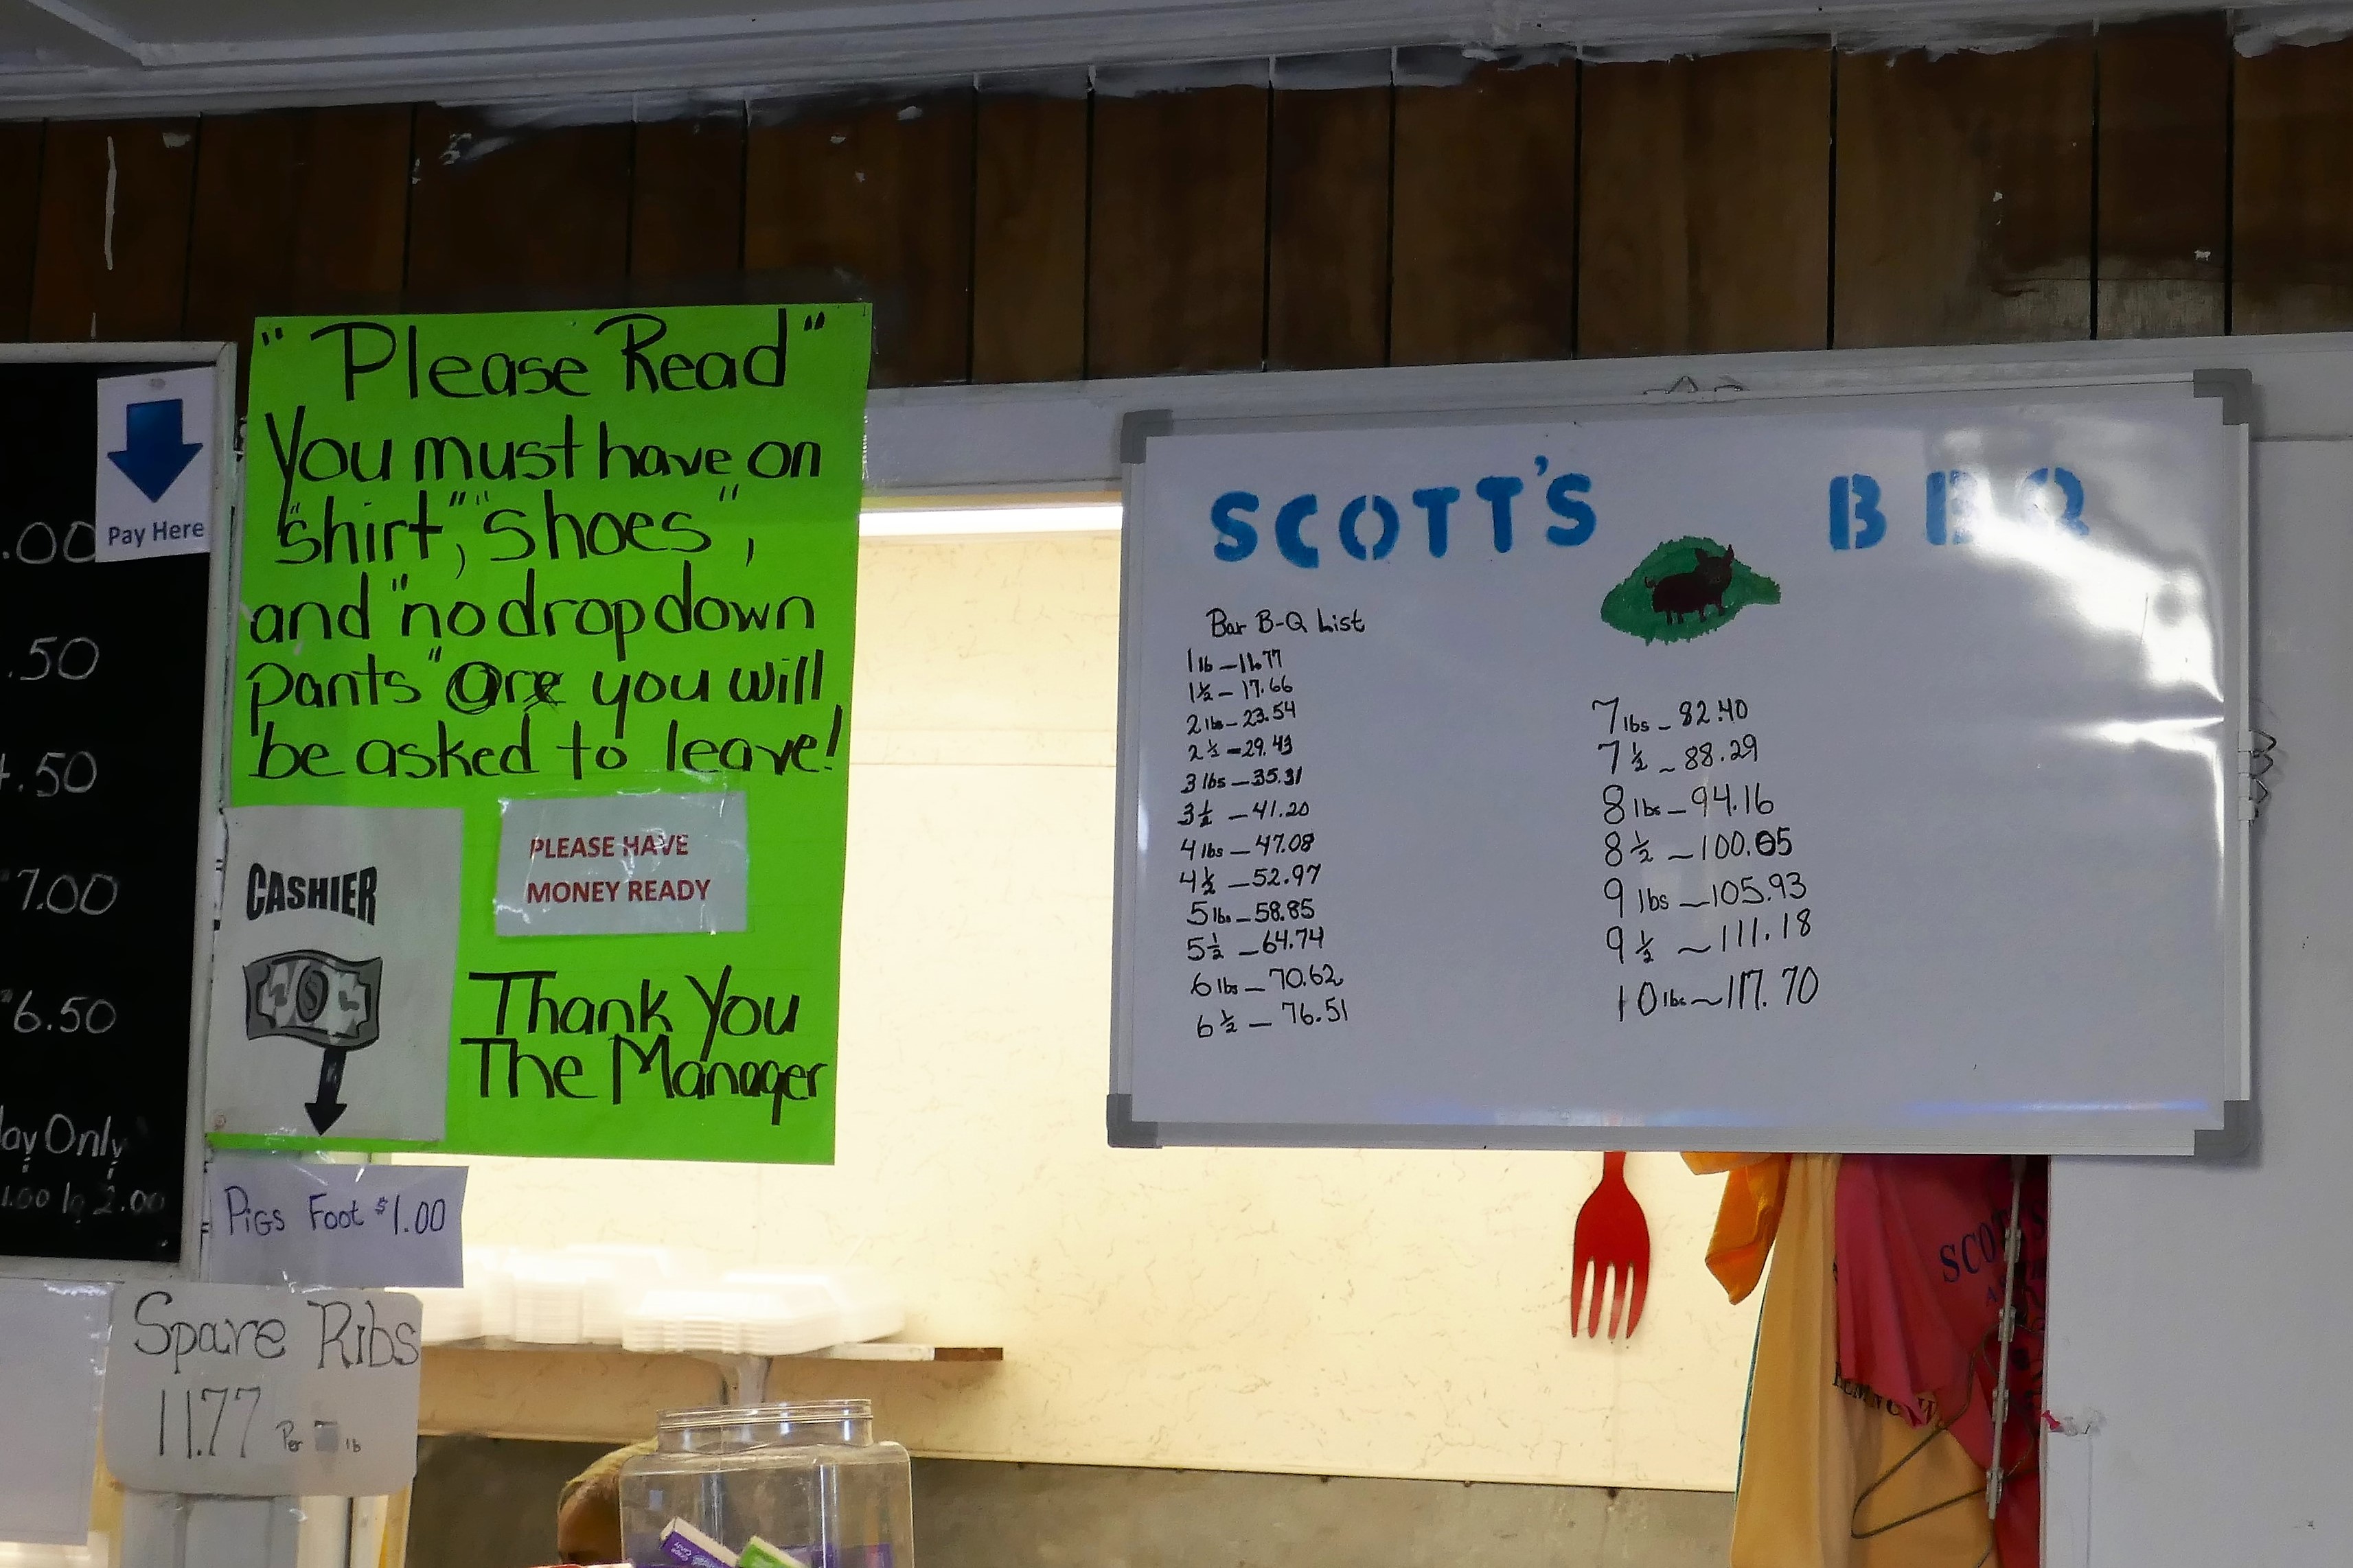 .00
.50
.50
7.00
6.50
ay Only
1.00 to 2.00
Pay Here
"Please Read"
You must have on
"shirt," "shoes",
and "no drop down
pants" are you will
be asked to leave!
CASHIER
PLEASE HAVE
MONEY READY
Thank You
The Manager
Pigs Foot $1.00
Spare Ribs
11.77 Per lb
SCOTT'S BBQ
Bar B-Q List
1 lb - 11.77
1 ½ - 17.66
2 lbs - 23.54
2 ½ - 29.43
3 lbs - 35.31
3 ½ - 41.20
4 lbs - 47.08
4 ½ - 52.97
5 lbs - 58.85
5 ½ - 64.74
6 lbs - 70.62
6 ½ - 76.51
7 lbs - 82.40
7 ½ ~ 88.29
8 lbs - 94.16
8 ½ ~ 100.05
9 lbs ~ 105.93
9 ½ ~ 111.18
10 lbs ~ 117.70